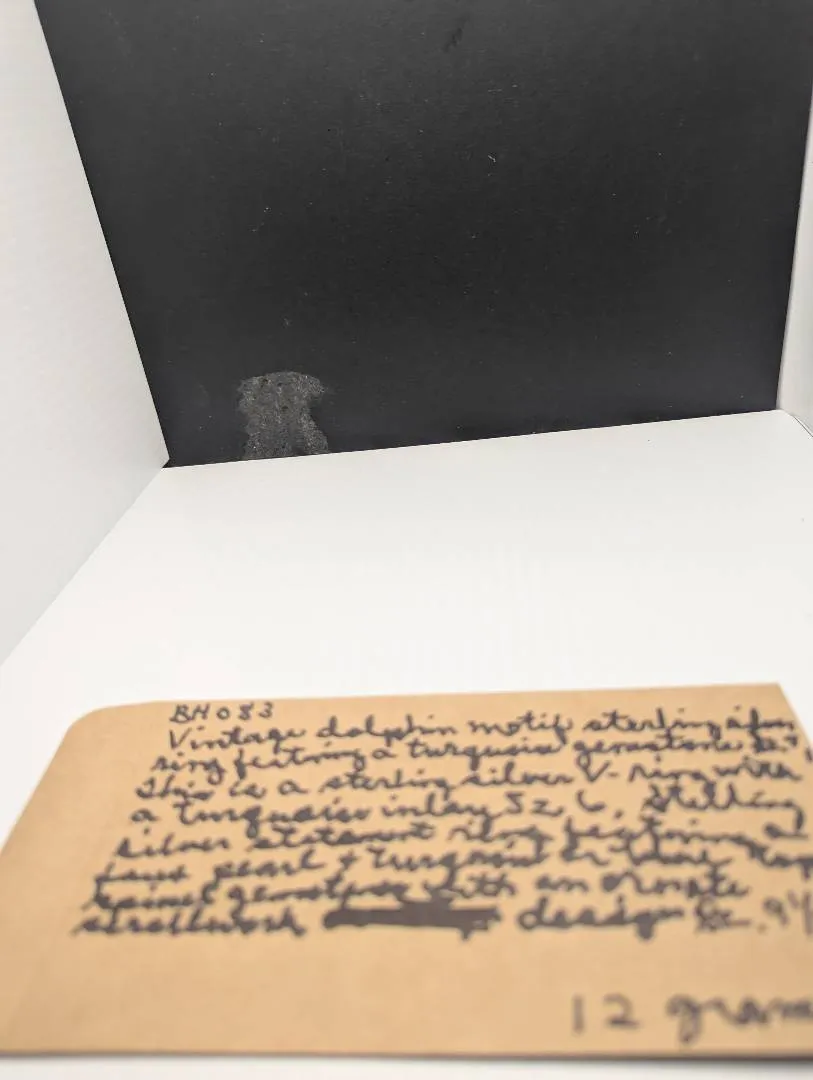 BH083
Vintage dolphin motif sterling silver
ring featring a turquoise gemstone Sz.
This is a sterling silver V-ring with
a turquoise inlay Sz 6. Sterling
silver statement ring featuring a
faux pearl + turquoise
gemstones with an ornate
scrollwork design Sz. 9
12 gram